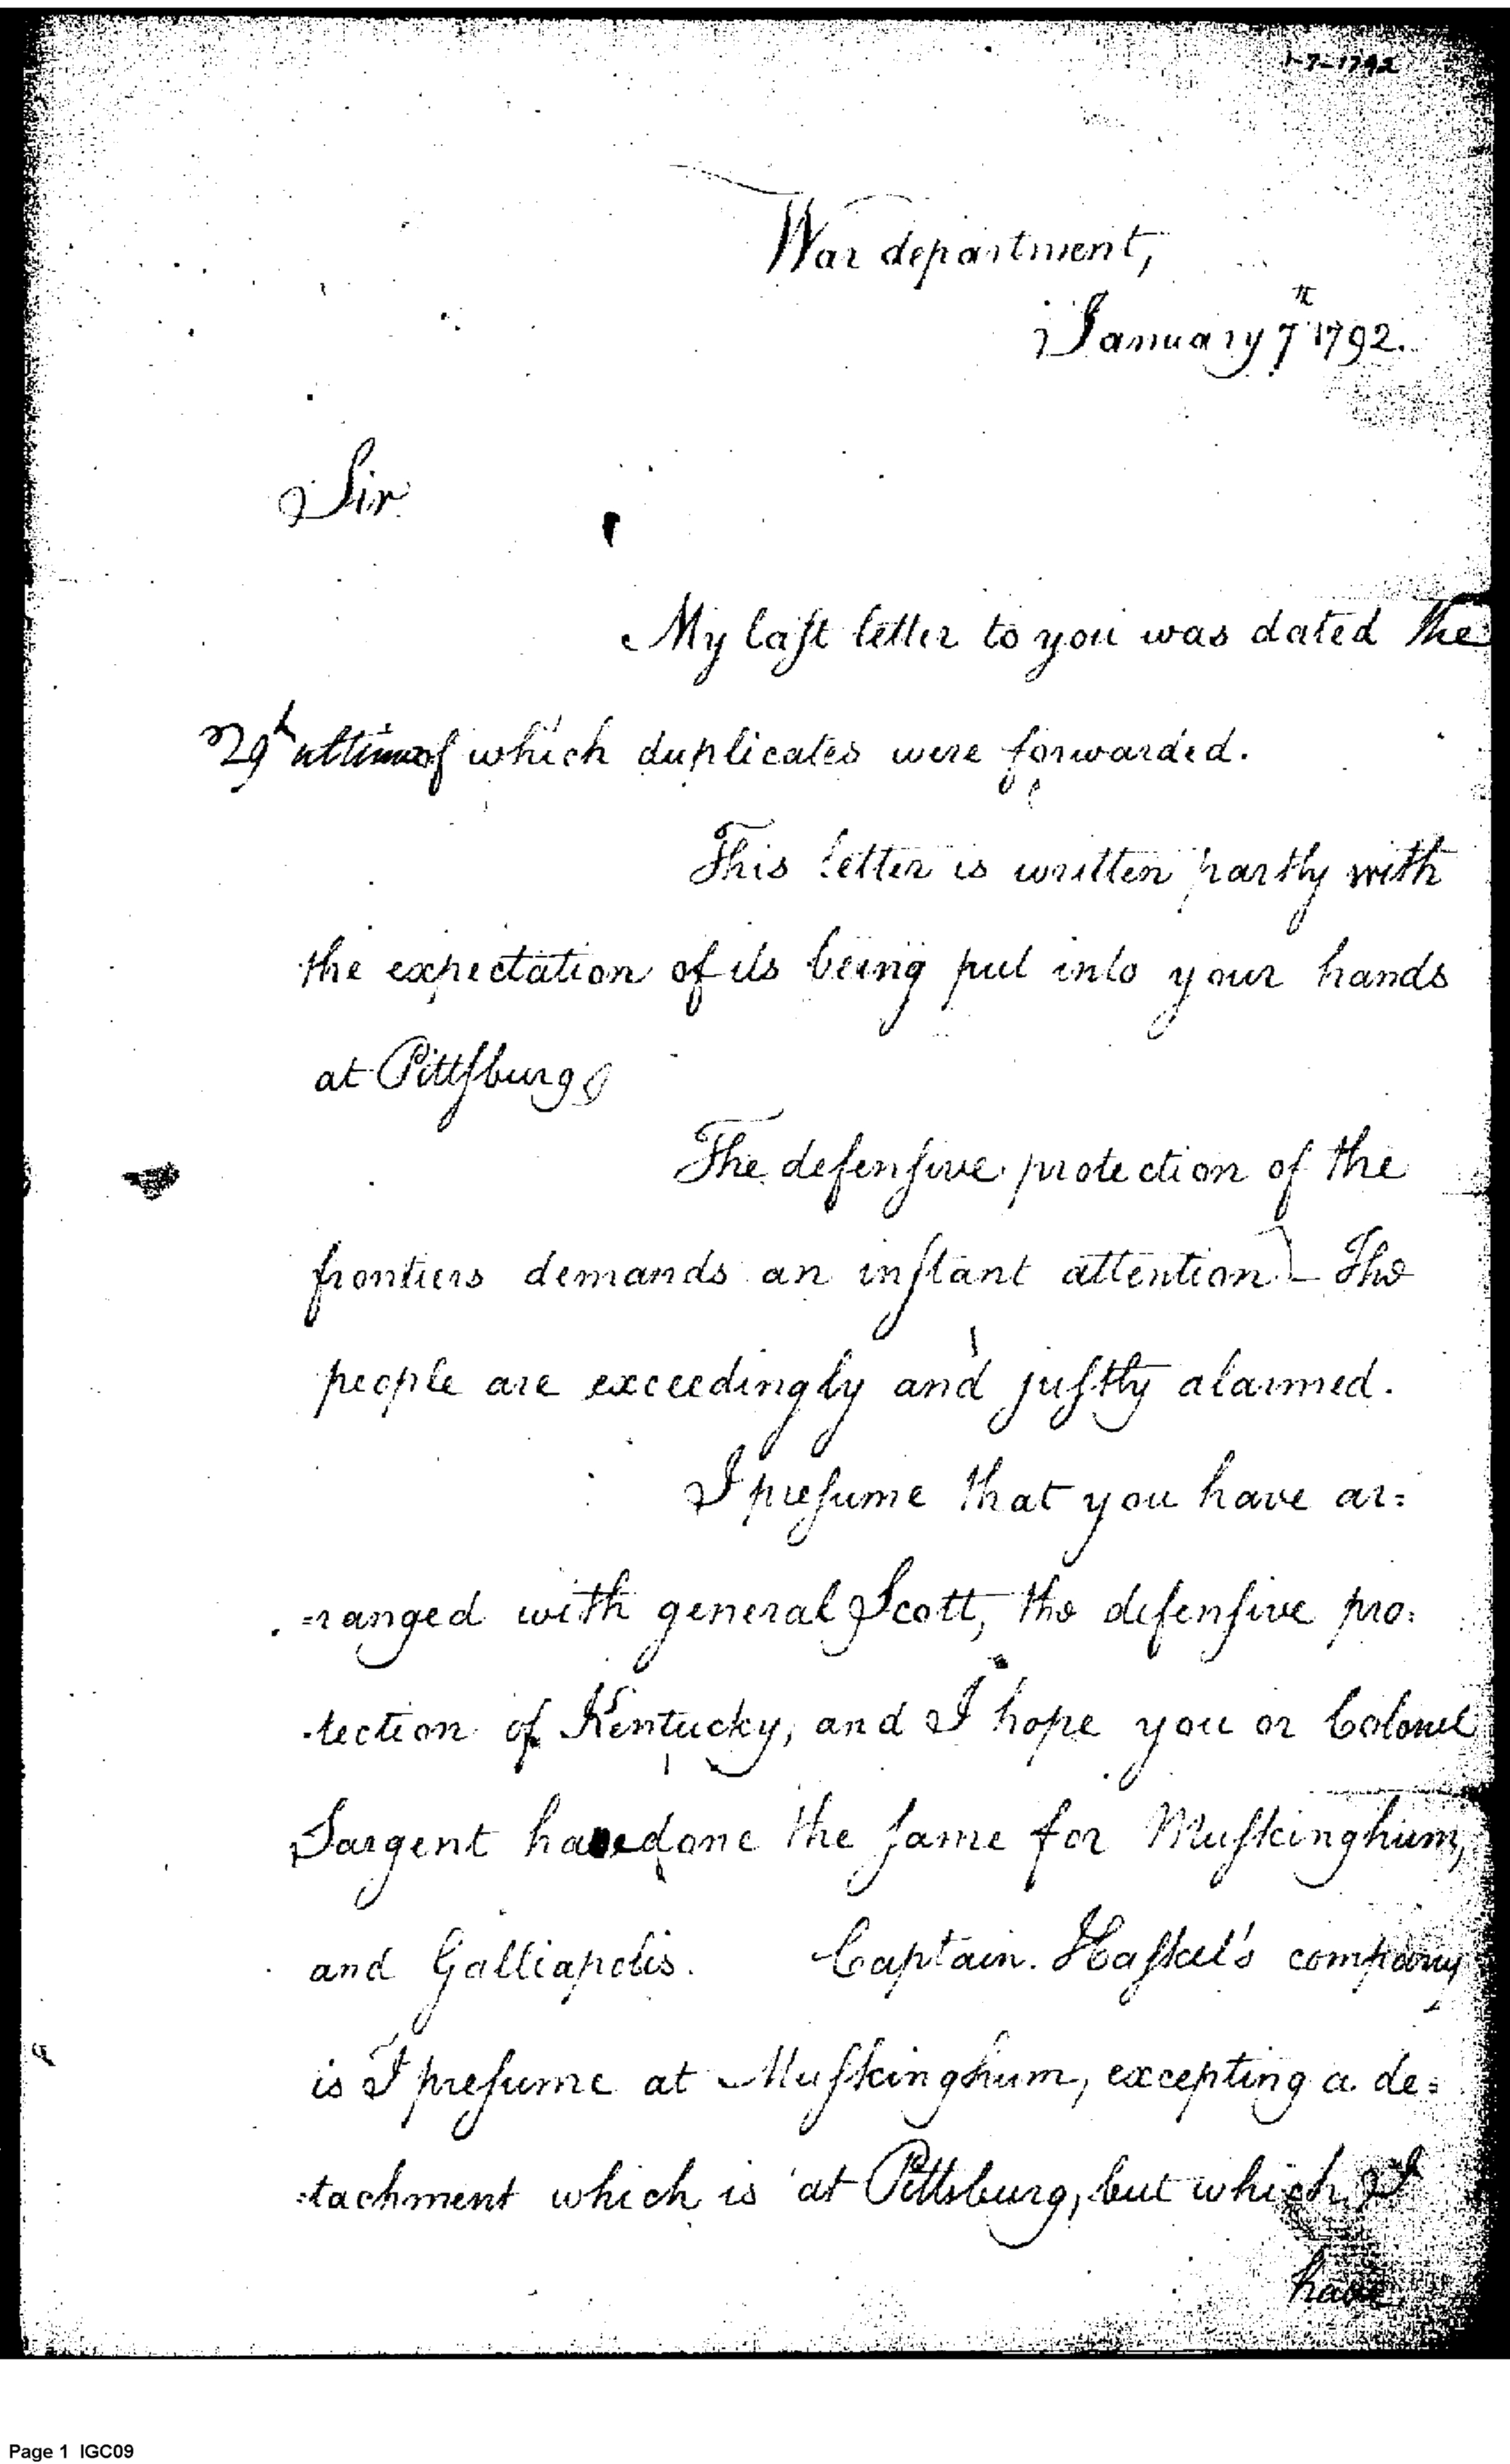 1-7-1792
War department,
January 7th 1792.
Sir
My laſt letter to you was dated the
29th ultimo of which duplicates were forwarded.
This letter is written partly with
the expectation of its being put into your hands
at Pittſburg
The defenſive protection of the
frontiers demands an inſtant attention – The
people are exceedingly and juſtly alarmed.
I preſume that you have ar=
=ranged with general Scott, the defenſive pro=
=tection of Kentucky, and I hope you or Colonel
Sargent have done the ſame for Muſkinghum,
and Galliapolis. Captain Haſkel's company
is I preſume at Muſkinghum, excepting a de=
=tachment which is at Pittsburg, but which I
have
Page 1 IGC09